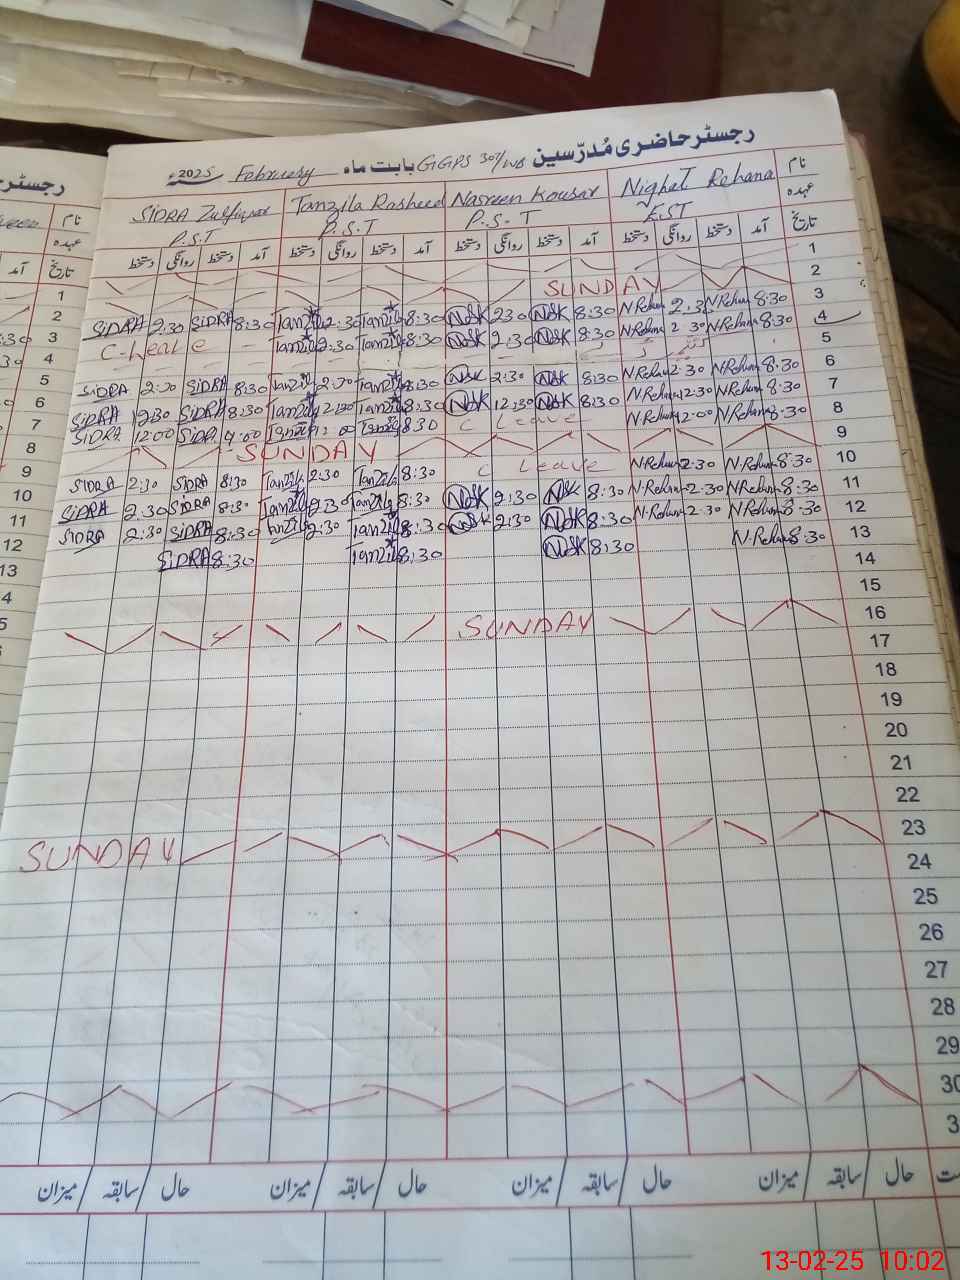 رجسٹر حاضری مُدرّسین GGPS 307/WB بابت ماہ February 2025ء
نام Nighat Rehana Nasreen Kousar Tanzila Rasheed SIDRA Zulfiqar نام
عہدہ EST P.S.T P.S.T P.S.T عہدہ
تاریخ آمد دستخط روانگی دستخط آمد دستخط روانگی دستخط آمد دستخط روانگی دستخط آمد دستخط روانگی دستخط تاریخ آمد
1
2 SUNDAY 1
3 8:30 N.Rehana 2:30 N.Rehana 8:30 NosK 230 NosK 8:30 Tanzila 2:30 Tanzila 8:30 SIDRA 2:30 SIDRA 2
4 8:30 N.Rehana 2 30 N.Rehana 8:30 NosK 2:30 NosK 8:30 Tanzila 2:30 Tanzila C-Leave 3
5 4
6 8:30 N.Rehana 2:30 N.Rehana 8:30 NosK 2:30 NosK 8:30 Tanzila Tanzila 8:30 SIDRA SIDRA 5
7 8:30 N.Rehana 12:30 N.Rehana 8:30 NosK 12:30 NosK 8:30 Tanzila 12:30 Tanzila 8:30 SIDRA 12:30 SIDRA 6
8 8:30 N.Rehana 12:00 N.Rehana C Leave 8:30 Tanzila Tanzila SIDRA 12:00 SIDRA 7
9 SUNDAY 8
10 8:30 N.Rehana 2:30 N.Rehana C Leave 8:30 Tanzila 2:30 Tanzila 8:30 SIDRA 2:30 SIDRA 9
11 8:30 N.Rehana 2:30 N.Rehana 8:30 NosK 2:30 NosK 8:30 Tanzila 2:30 Tanzila 8:30 SIDRA 2:30 SIDRA 10
12 8:30 N.Rehana 2:30 N.Rehana 8:30 NosK 2:30 NosK 8:30 Tanzila 2:30 Tanzila 8:30 SIDRA 2:30 SIDRA 11
13 8:30 N.Rehana 8:30 NosK 8:30 Tanzila 8:30 SIDRA 12
14 13
15
16 SUNDAY
17
18
19
20
21
22
23
24 SUNDAY
25
26
27
28
29
30
حال سابقہ میزان حال سابقہ میزان حال سابقہ میزان حال سابقہ میزان
13-02-25 10:02